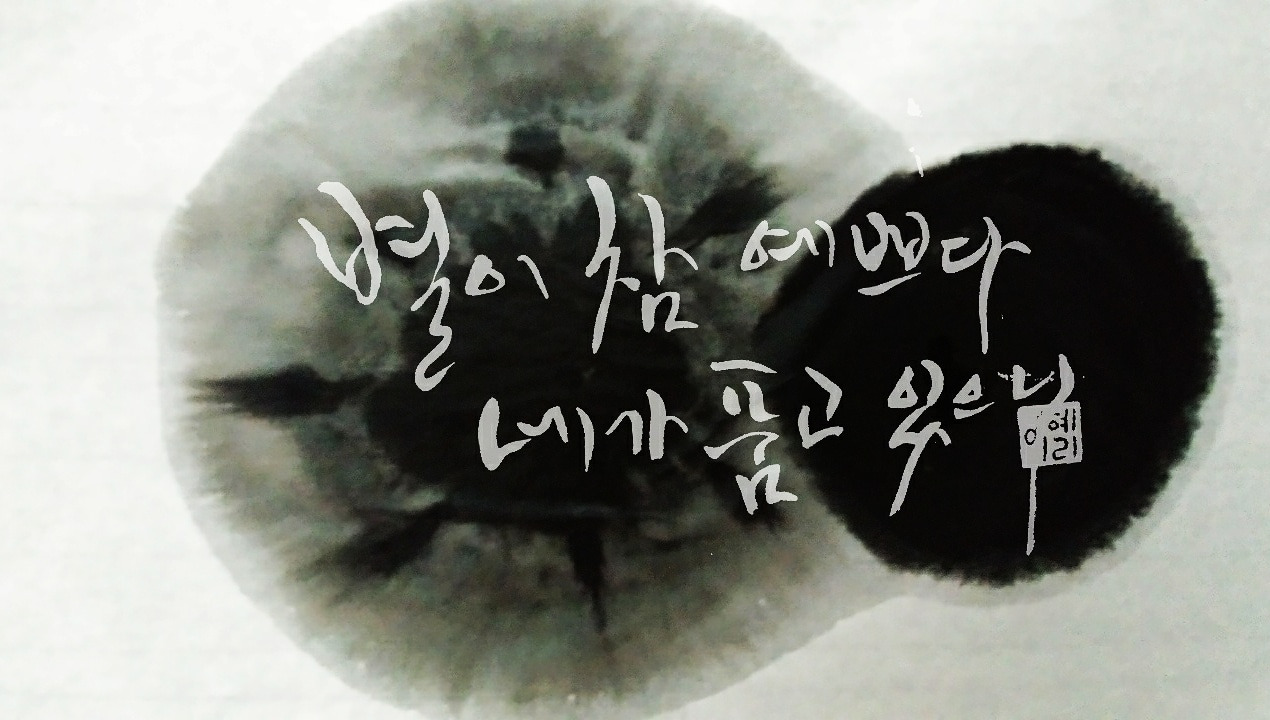 별이 참 예쁘다
네가 품고 있으니
이예리